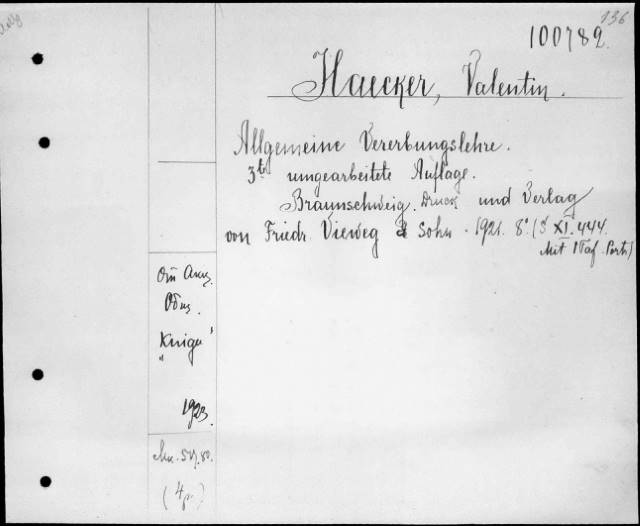 136
100782.
Haecker, Valentin.
Allgemeine Vererbungslehre.
3te umgearbeitete Auflage.
Braunschweig. Druck und Verlag
von Friedr. Vieweg & Sohn. 1921. 8° (S XI. 444.
Mit 1 Taf. Portr.)
"Kniga"
1923.
(4 p.)